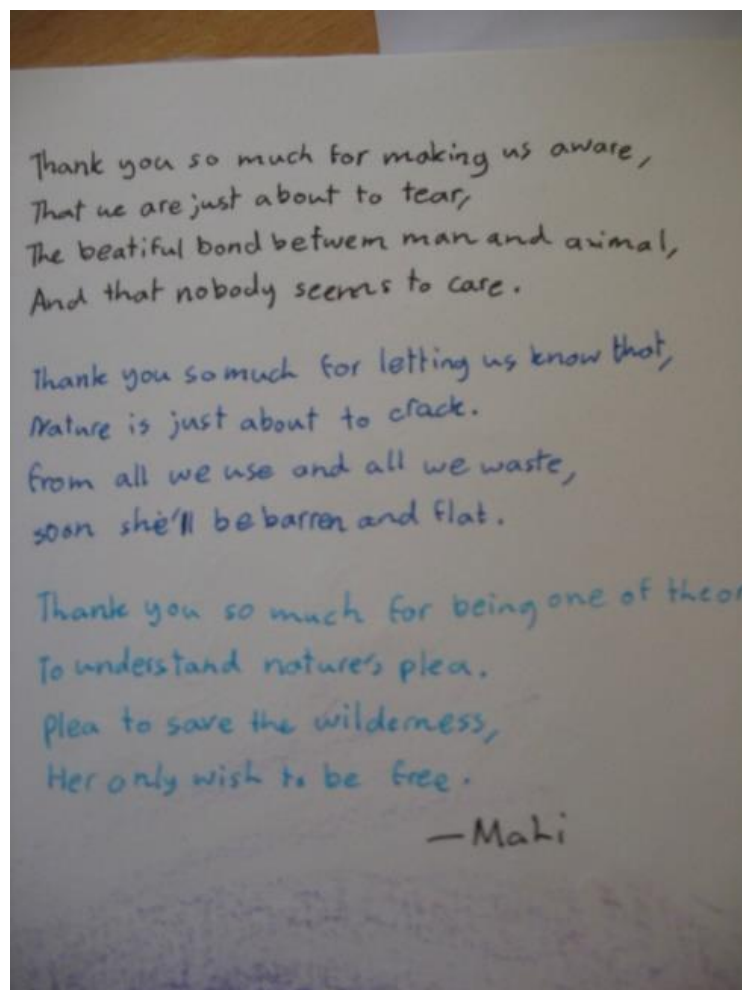 Thank you so much for making us aware,
That we are just about to tear,
The beatiful bond betwem man and animal,
And that nobody seems to care.
Thank you so much for letting us know that,
Nature is just about to crack.
from all we use and all we waste,
soon she'll be barren and flat.
Thank you so much for being one of
To understand nature's plea.
plea to save the wilderness,
Her only wish to be free.
-Mahi